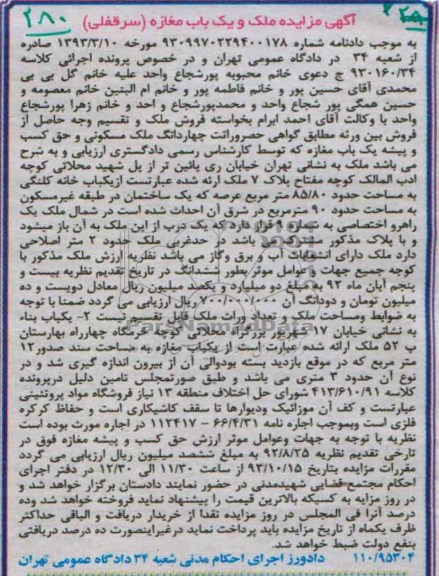 ۲۵
۲۸۰
آگهی مزایده ملک و یک باب مغازه (سرقفلی)
به موجب دادنامه شماره ۹۳۰۹۹۷۰۲۲۹۴۰۰۱۷۸ مورخه ۱۳۹۳/۳/۱۰ صادره
از شعبه ۳۴ در دادگاه عمومی تهران و در خصوص پرونده اجرائی کلاسه
۹۳۰۱۶۰/۳۴ ج دعوی خانم محبوبه پورشجاع واحد علیه خانم گل بی بی
محمدی آقای حسین پور و خانم فاطمه پور و خانم ام البنین خانم معصومه و
حسین همگی پور شجاع واحد و محمدپورشجاع و احد و خانم زهرا پورشجاع
واحد با وکالت آقای احمد ابرام بخواسته فروش ملک و تقسیم وجه حاصل از
فروش بین ورثه مطابق گواهی حصروراثت چهاردانگ ملک مسکونی و حق کسب
و پیشه یک باب مغازه که توسط کارشناس رسمی دادگستری ارزیابی و به شرح
می باشد ملک به نشانی تهران خیابان ری پائین تر از پل شهید محلاتی کوچه
ادب الممالک کوچه مفتاح پلاک ۷ ملک ارئه شده عبارتست ازیکباب خانه کلنگی
به مساحت حدود ۸۵/۸۰ متر مربع عرصه که یک ساختمان در طبقه غیرمسکون
به مساحت حدود ۹۰ مترمربع در شرق آن احداث شده است در شمال ملک یک
راهرو اختصاصی به شماره ۹ قرار دارد که یک درب از این ملک به آن باز میشود
و با پلاک مذکور مشترک می باشد در حدغربی ملک حدود ۲ متر اصلاحی
دارد ملک دارای انشعابات آب و برق وگاز می باشد نظریه ارزش ملک مذکور با
توجه جمیع جهات و عوامل موثر بطور ششدانگ در تاریخ تقدیم نظریه بیست و
پنجم آبان ماه ۹۲ به مبلغ دو میلیارد و یکصد میلیون ریال معادل دویست و ده
میلیون تومان و دودانگ آن ۷۰۰/۰۰۰/۰۰۰ ریال ارزیابی می گردد ضمنا با توجه
به ضوابط ومساحت ملک و تعداد وراث ملک قابل تقسیم نیست ۲- یکباب بناء
به نشانی خیابان ۱۷ شهریور بزرگراه محلاتی کوچه خرمگاه چهارراه بهارستان
پ ۵۲ ملک ارائه شده عبارت است از یکباب مغازه به مساحت سند صدور۱۲
متر مربع که در موقع بازدید بسته بودوالی آن از بیرون اندازه گیری شد و در
نوع آن حدود ۳ متری می باشد و طبق صورتمجلس تامین دلیل درپرونده
کلاسه ۴۱۳/۶۱۰/۹۱ شورای حل اختلاف منطقه ۱۳ نیاز فروشگاه مواد پروتئینی
عبارتست و کف آن موزائیک ودیوارها تا سقف کاشیکاری است و حفاظ کرکره
فلزی است وبموجب اجاره نامه ۶۶/۴/۳۱ - ۱۱۲۴۱۷ در اجاره مورث بوده است
نظریه با توجه به جهات وعوامل موثر ارزش حق کسب و پیشه مغازه فوق در
تاریخی تقدیم نظریه ۹۲/۸/۲۵ به مبلغ ششصد میلیون ریال ارزیابی می گردد
مقررات مزایده بتاریخ ۹۳/۱۰/۱۵ از ساعت ۱۱/۳۰ الی ۱۲/۳۰ در دفتر اجرای
احکام مجتمع قضایی شهیدمدنی در حضور نمایند دادستان برگزار خواهد شد و
در روز مزایه به کسیکه بالاترین قیمت را پیشنهاد نماید فروخته خواهد شد وده
درصد آنرا فی المجلس در روز مزایده نقدا از خریدار دریافت و الباقی حداکثر
ظرف یکماه از تاریخ مزایده باید پرداخت نماید درغیراینصورت ده درصد دریافتی
بنفع دولت ضبط خواهد شد.
۱۱۰/۹۵۳۰۴ دادورز اجرای احکام مدنی شعبه ۳۴ دادگاه عمومی تهران